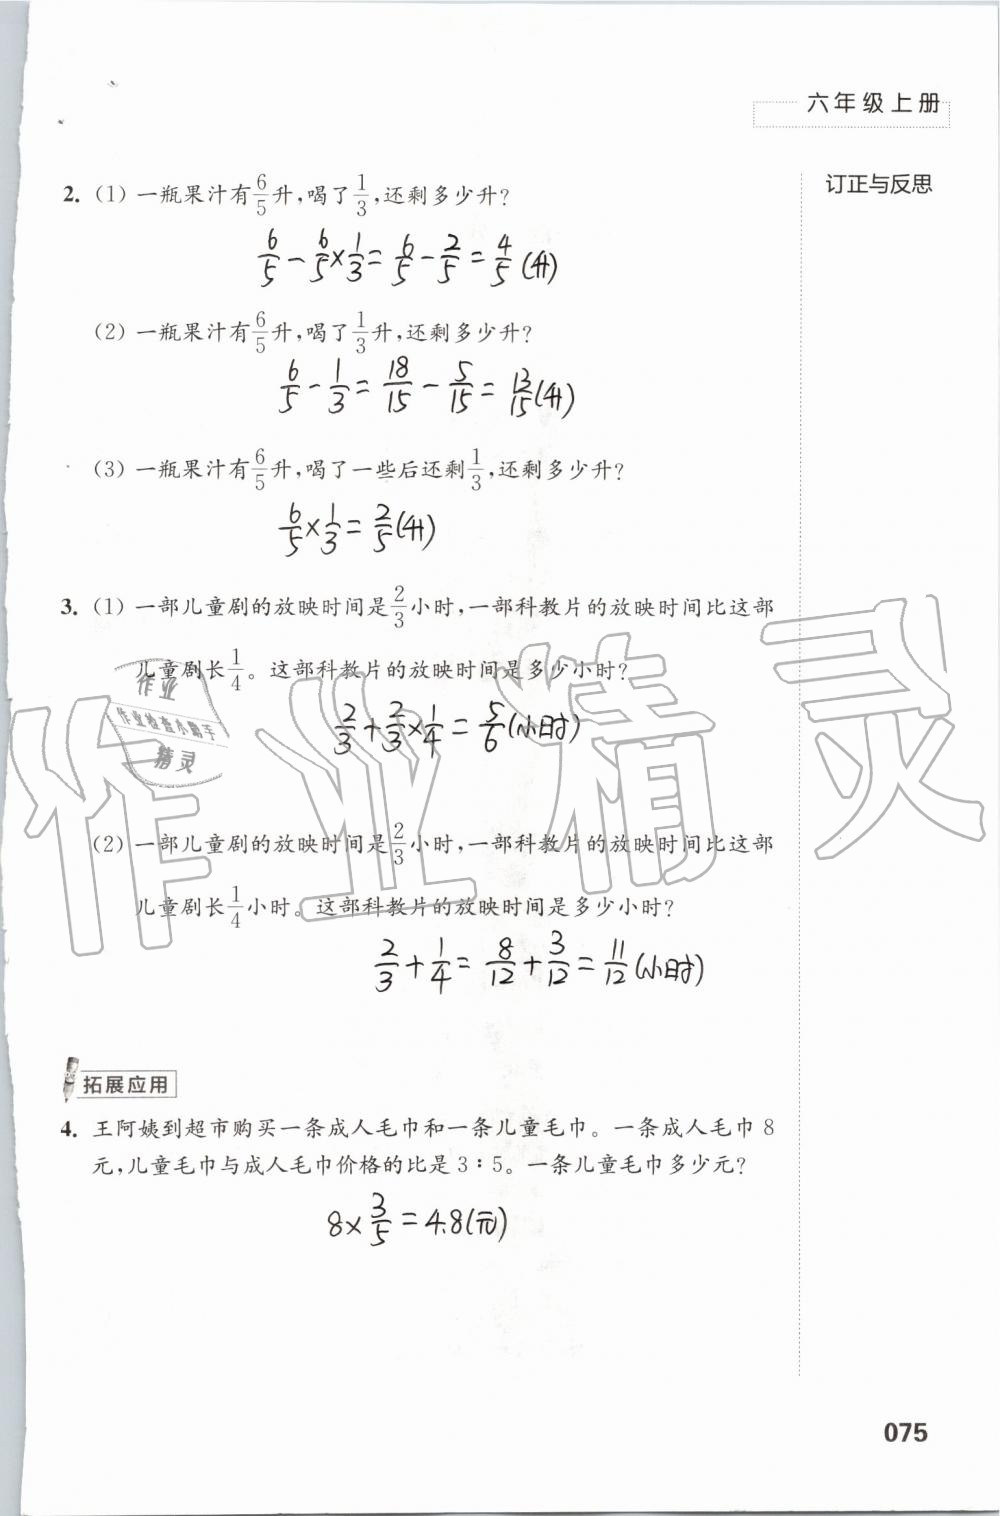 六年级上册
订正与反思
2. (1) 一瓶果汁有6/5升,喝了1/3,还剩多少升?
6/5 - 6/5 × 1/3 = 6/5 - 2/5 = 4/5 (升)
(2) 一瓶果汁有6/5升,喝了1/3升,还剩多少升?
6/5 - 1/3 = 18/15 - 5/15 = 13/15 (升)
(3) 一瓶果汁有6/5升,喝了一些后还剩1/3,还剩多少升?
6/5 × 1/3 = 2/5 (升)
3. (1) 一部儿童剧的放映时间是2/3小时,一部科教片的放映时间比这部
儿童剧长1/4。这部科教片的放映时间是多少小时?
2/3 + 2/3 × 1/4 = 5/6 (小时)
作业
作业检查小助手
精灵
作业精灵
(2) 一部儿童剧的放映时间是2/3小时,一部科教片的放映时间比这部
儿童剧长1/4小时。这部科教片的放映时间是多少小时?
2/3 + 1/4 = 8/12 + 3/12 = 11/12 (小时)
拓展应用
4. 王阿姨到超市购买一条成人毛巾和一条儿童毛巾。一条成人毛巾8
元,儿童毛巾与成人毛巾价格的比是3∶5。一条儿童毛巾多少元?
8 × 3/5 = 4.8 (元)
075